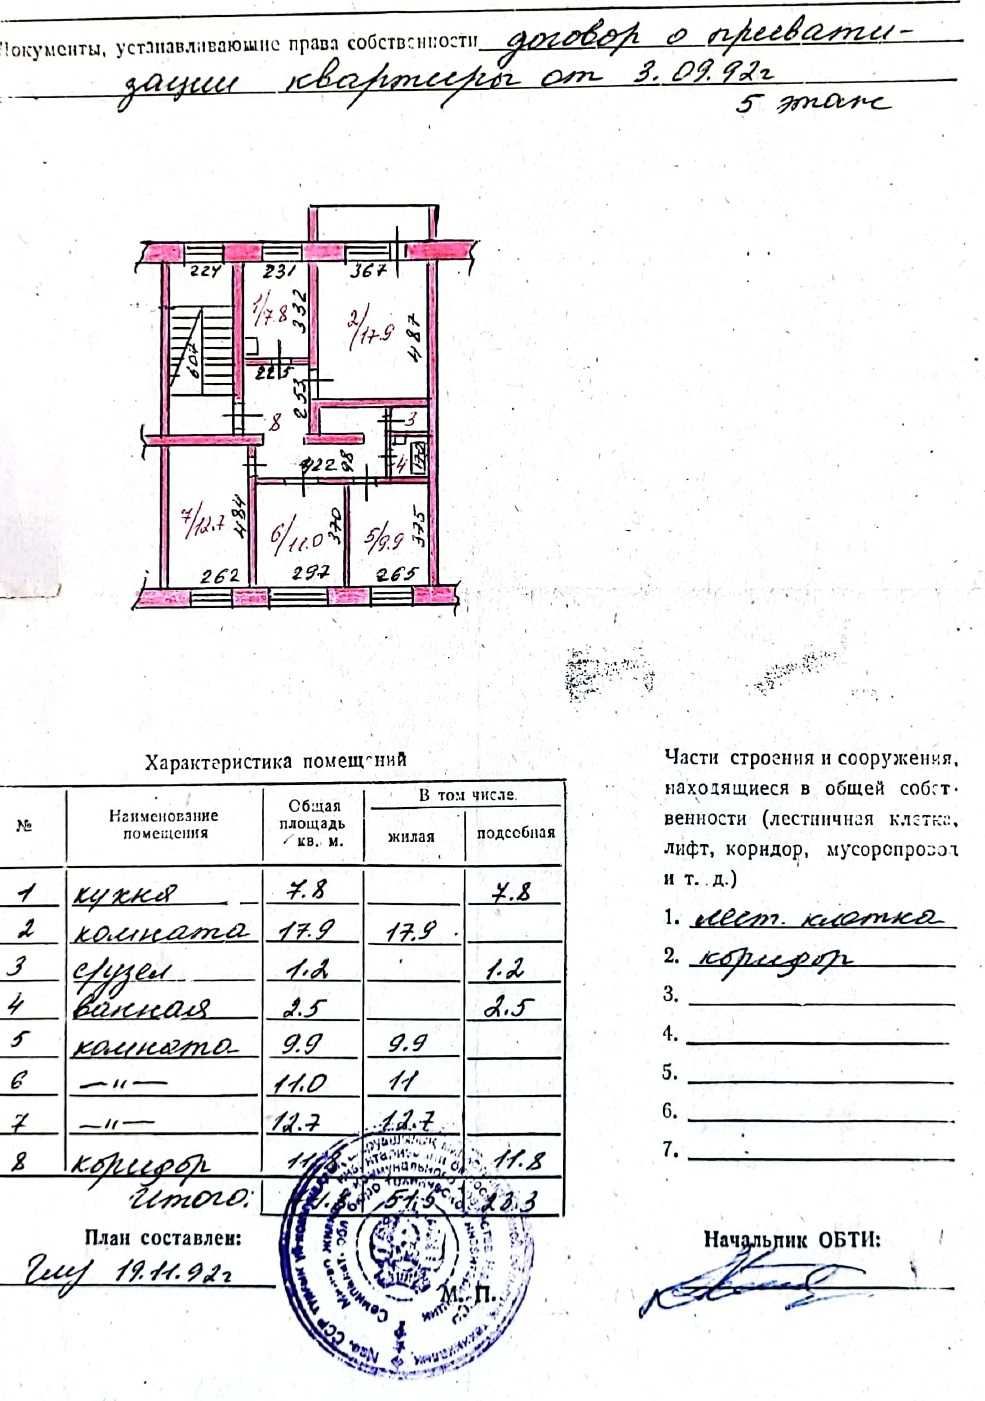 Документы, устанавливающие права собственности договор о привати-
зации квартиры от 3.09.92г
5 этаж
224 231 367
1/7.8 332
2/17.9 487
607
225
253
8
3
4 170
422 98
7/12.7 484
6/11.0 370
5/9.9 375
262 297 265
Характеристика помещений
№ Наименование помещения Общая площадь кв. м. В том числе: жилая подсобная
1 кухня 7.8 7.8
2 комната 17.9 17.9
3 с/узел 1.2 1.2
4 ванная 2.5 2.5
5 комната 9.9 9.9
6 —"— 11.0 11
7 —"— 12.7 12.7
8 коридор 11.8 11.8
Итого: 51.5 23.3
План составлен:
19.11.92г
М. П.
Части строения и сооружения,
находящиеся в общей собст-
венности (лестничная клетка,
лифт, коридор, мусоропровод
и т. д.)
1. лест. клетка
2. коридор
3.
4.
5.
6.
7.
Начальник ОБТИ: